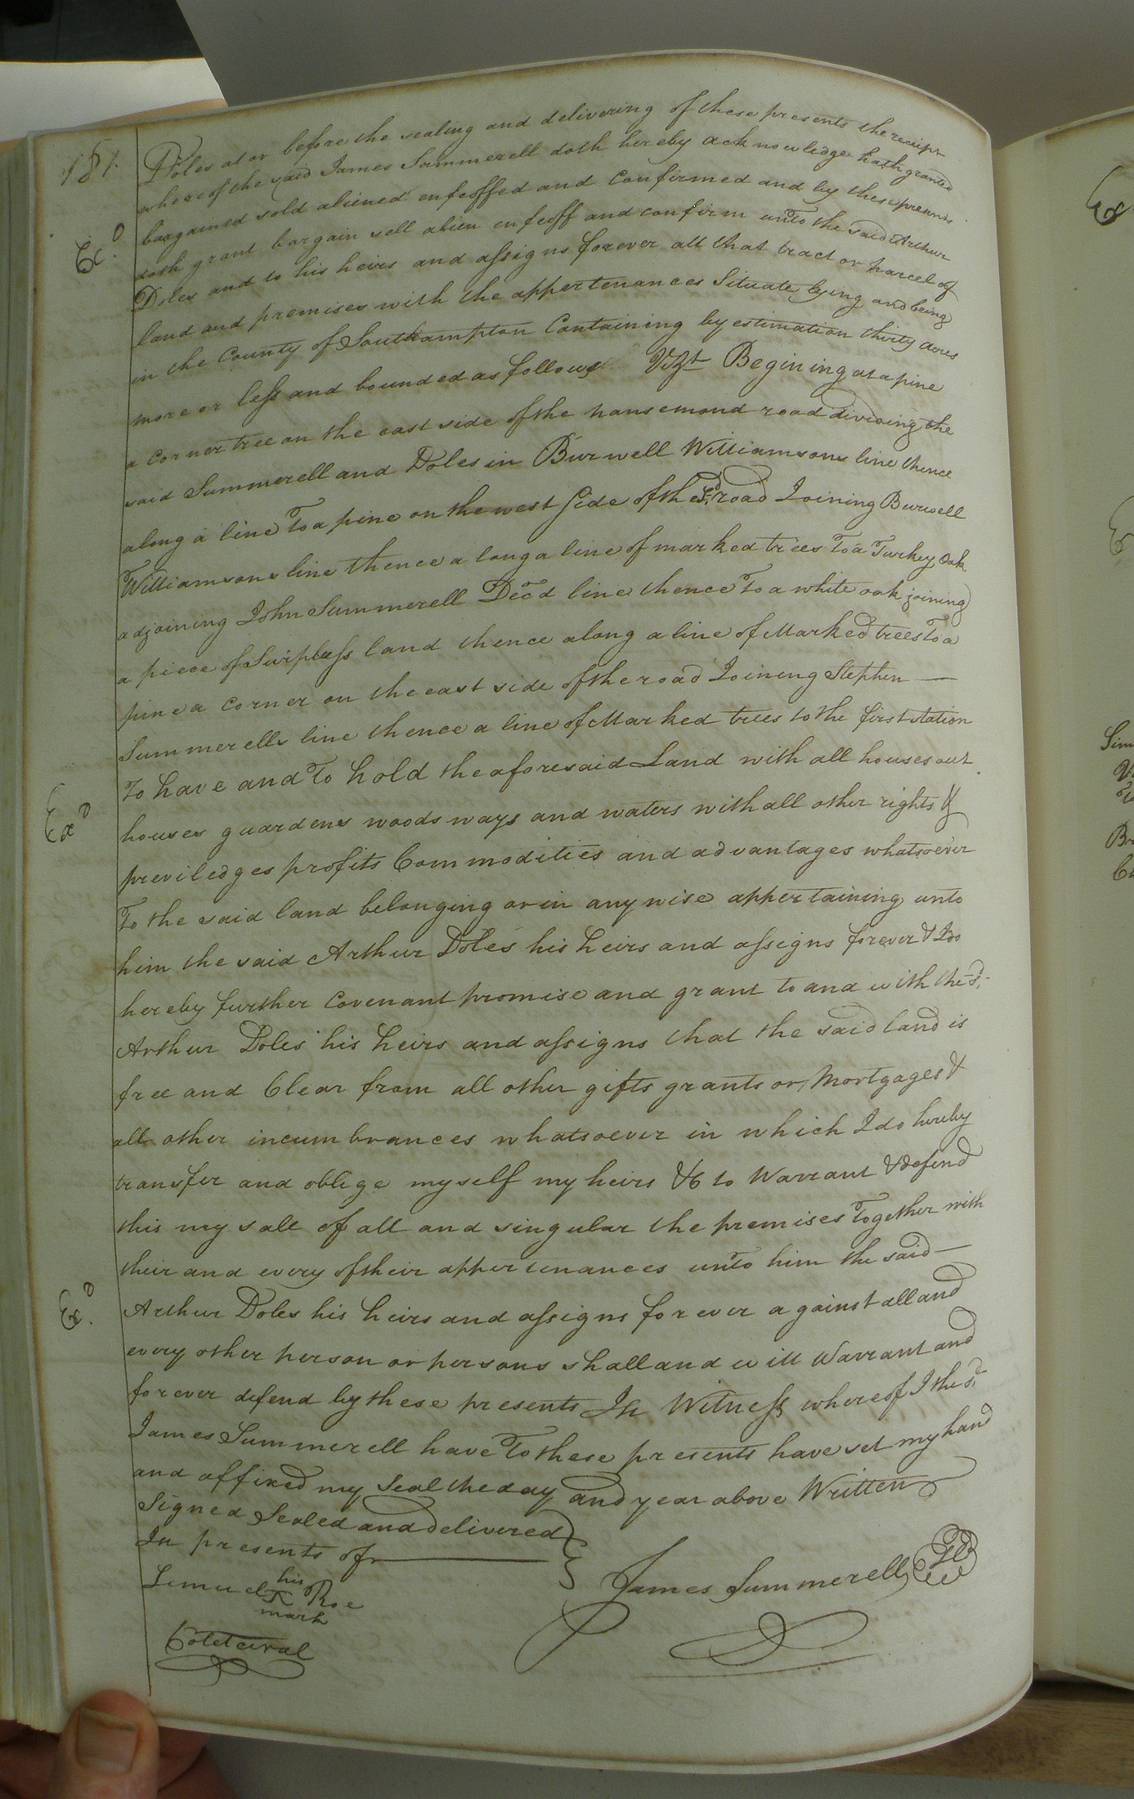 181.
Doles at or before the sealing and delivering of these presents the receipt
whereof the said James Summerell doth hereby acknowledge hath granted
bargained sold aliened enfeoffed and confirmed and by these presents
Exd.
doth grant bargain sell alien enfeoff and confirm unto the said Arthur
Doles and to his heirs and assigns forever all that tract or parcel of
land and premises with the appertenances Situate lying and being
in the County of Southampton Containing by estimation thirty acres
more or less and bounded as follows Vizt Begining at a pine
a corner tree on the east side of the nansemond road dividing the
said Summerell and Doles in Burwell Williamsons line thence
along a line To a pine on the west Side of the sd. road Joining Burwell
Williamsons line thence a long a line of marked trees To a Turkey Oak
adjoining John Summerell Decd line thence To a white oak joining
a piece of Surpluss land thence along a line of Marked trees To a
pine a corner on the east side of the road Joining Stephen —
Summerells line thence a line of Marked trees to the first station
To have and To hold the aforesaid Land with all houses out
Exd
houses guardens woods ways and waters with all other rights &
previledges profits Commodities and advantages whatsoever
To the said land belonging or in any wise appertaining unto
him the said Arthur Doles his heirs and assigns forever & I do
hereby further Covenant promise and grant to and with the sd.
Arthur Doles his heirs and assigns that the said land is
free and Clear from all other gifts grants or, Mortgages &
all other incumbrances whatsoever in which I do hereby
transfer and oblige myself my heirs &c to Warrant & defend
this my sale of all and singular the premises Together with
their and every of their appertenances unto him the said —
Exd.
Arthur Doles his heirs and assigns forever against all and
every other person or persons shall and will Warrant and
forever defend by these presents In Witness whereof I the sd.
James Summerell have To these presents have set my hand
and affixed my Seal the day and year above Written
Signed Sealed and delivered
In presents of
James Summerell
Lemuel his Roe
mark